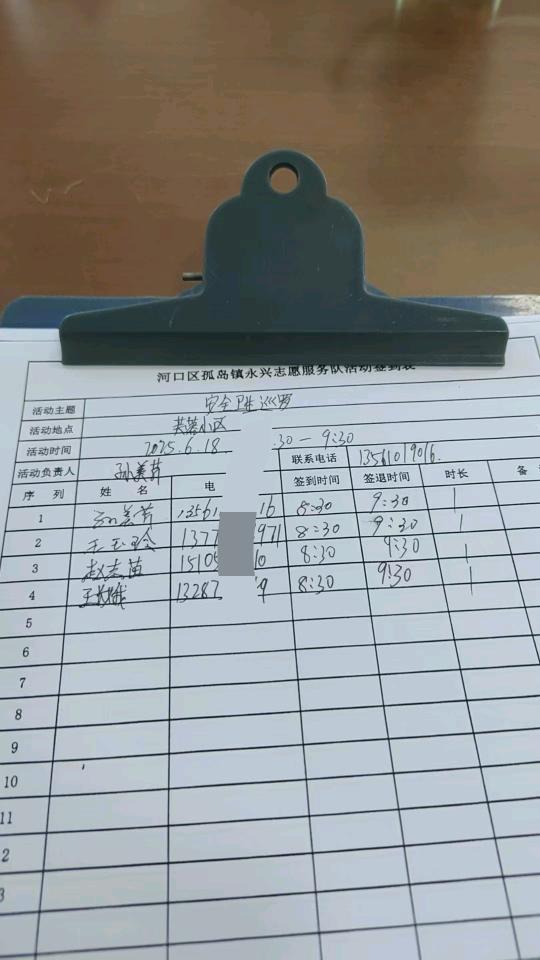 河口区孤岛镇永兴志愿服务队活动签到表
活动主题 安全卫生巡罗
活动地点 芙蓉小区
活动时间 2025.6.18 .30 — 9:30
活动负责人 孙美芳 联系电话 13561019016.
序 列 姓 名 电 签到时间 签退时间 时长 备
1 孙美芳 13561 16 8:30 9:30 1
2 王玉玲 1377 971 8:30 9:30 1
3 赵志苗 15105 10 8:30 9:30 1
4 13287 9 8:30 9:30 1
5
6
7
8
9
10
11
2
3